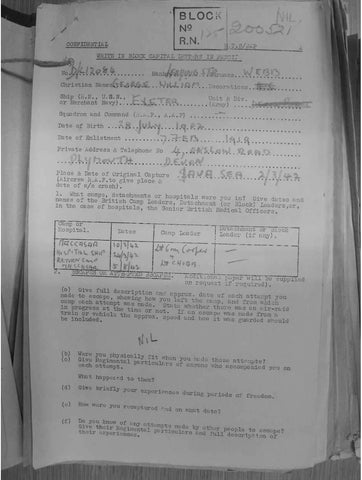 BLOCK
Nº
R.N.
NIL
CONFIDENTIAL
WRITE IN BLOCK CAPITAL LETTERS IN PENCIL
No. Surname WEBB
Christian Names GEORGE WILLIAM Decorations
Ship (R.N., U.S.N., or Merchant Navy). EXETER Unit & Div. (Army)
Squadron and Command (R.A.F., A.A.F)
Date of Birth 28 JULY 1902
Date of Enlistment 1919
Private Address & Telephone No 4, ROAD
PLYMOUTH DEVON
Place & Date of Original Capture JAVA SEA 2/3/42
(Aircrew R.A.F. to give place & date of a/c crash).
1. What camps, detachments or hospitals were you in? Give dates and names of the British Camp Leaders, Detachment (or Block) Leaders, or, in the case of hospitals, the Senior British Medical Officers.
Camp or Hospital. Dates Camp Leader Detachment or Block Leader (if any).
MACCASAR 10/3/42 Lt Com Cooper
HOSPITAL SHIP
MACASSAR
Additional paper will be supplied on request if required).
(a) Give full description and approx. date of each attempt you made to escape, showing how you left the camp, and from which camp each attempt was made. State whether there was an air-raid in progress at the time or not. If an escape was made from a train or vehicle the approx. speed and how it was guarded should be included.
NIL
(b) Were you physically fit when you made these attempts?
(c) Give Regimental particulars of anyone who accompanied you on each attempt.
What happened to them?
(d) Give briefly your experiences during periods of freedom.
(e) How were you recaptured and on what date?
(f) Do you know of any attempts made by other people to escape? Give their Regimental particulars and full description of their experiences.